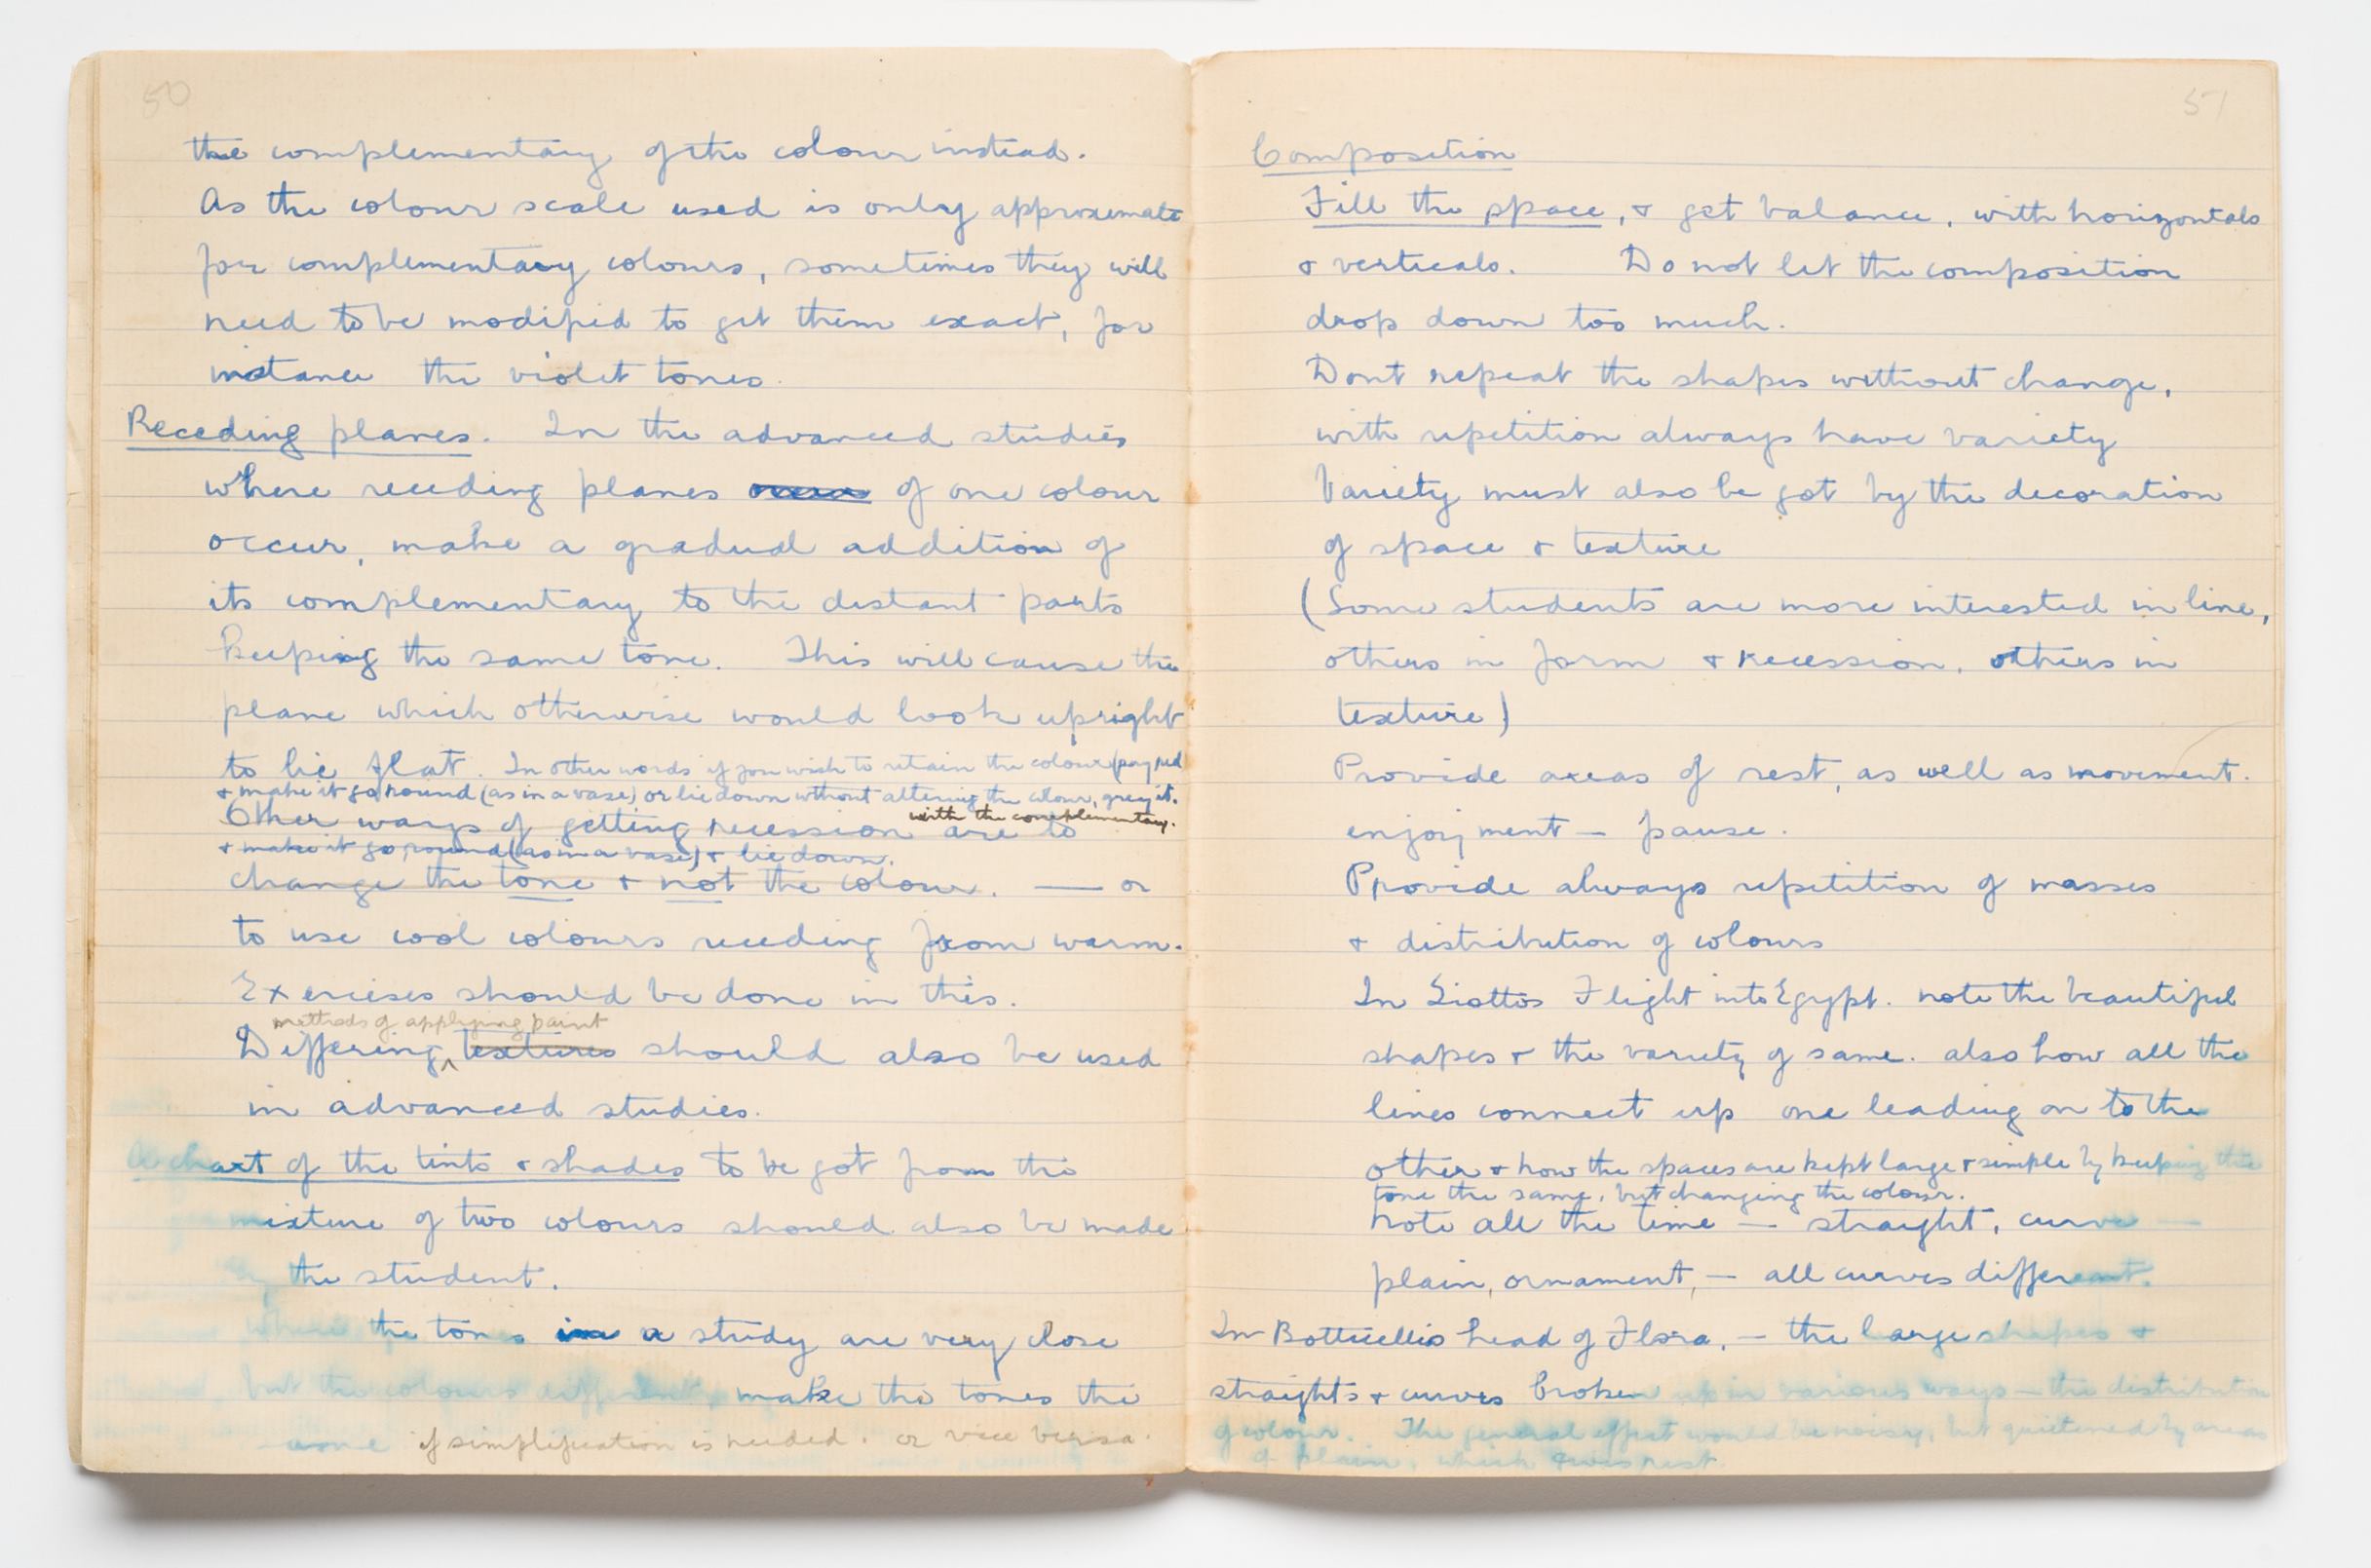 50
the complementary of the colour instead.
As the colour scale used is only approximate
for complementary colours, sometimes they will
need to be modified to get them exact, for
instance the violet tones.
Receding planes. In the advanced studies
where receding planes of one colour
occur, make a gradual addition of
its complementary to the distant parts
keeping the same tone. This will cause the
plane which otherwise would look upright
to lie flat. In other words if you wish to retain the colour (say red
+ make it go round (as in a vase) or lie down without altering the colour, grey it.
with the complementary.
Other ways of getting recession are to
+ make it go round (as in a vase) + lie down.
change the tone + not the colour. — or
to use cool colours receding from warm.
Exercises should be done in this.
methods of applying paint
Differing textures should also be used
in advanced studies.
A chart of the tints + shades to be got from the
mixture of two colours should also be made
by the student.
Where the tones in a study are very close
but the colours different, make the tones the
same if simplification is needed. or vice versa.
51
Composition
Fill the space, + get balance, with horizontals
+ verticals. Do not let the composition
drop down too much.
Dont repeat the shapes without change,
with repetition always have variety
Variety must also be got by the decoration
of space + texture
(Some students are more interested in line,
others in form + recession, others in
texture)
Provide areas of rest, as well as movement.
enjoyment — pause.
Provide always repetition of masses
+ distribution of colours
In Giottos Flight into Egypt. note the beautiful
shapes + the variety of same. also how all the
lines connect up one leading on to the
other + how the spaces are kept large + simple by keeping the
tone the same, but changing the colour.
Note all the time — straight, curve —
plain, ornament, — all curves different.
In Botticellis head of Flora, — the large shapes +
straights + curves broken up in various ways — the distribution
of colour. The general effect would be noisy, but quietened by areas
of plain, which gives rest.